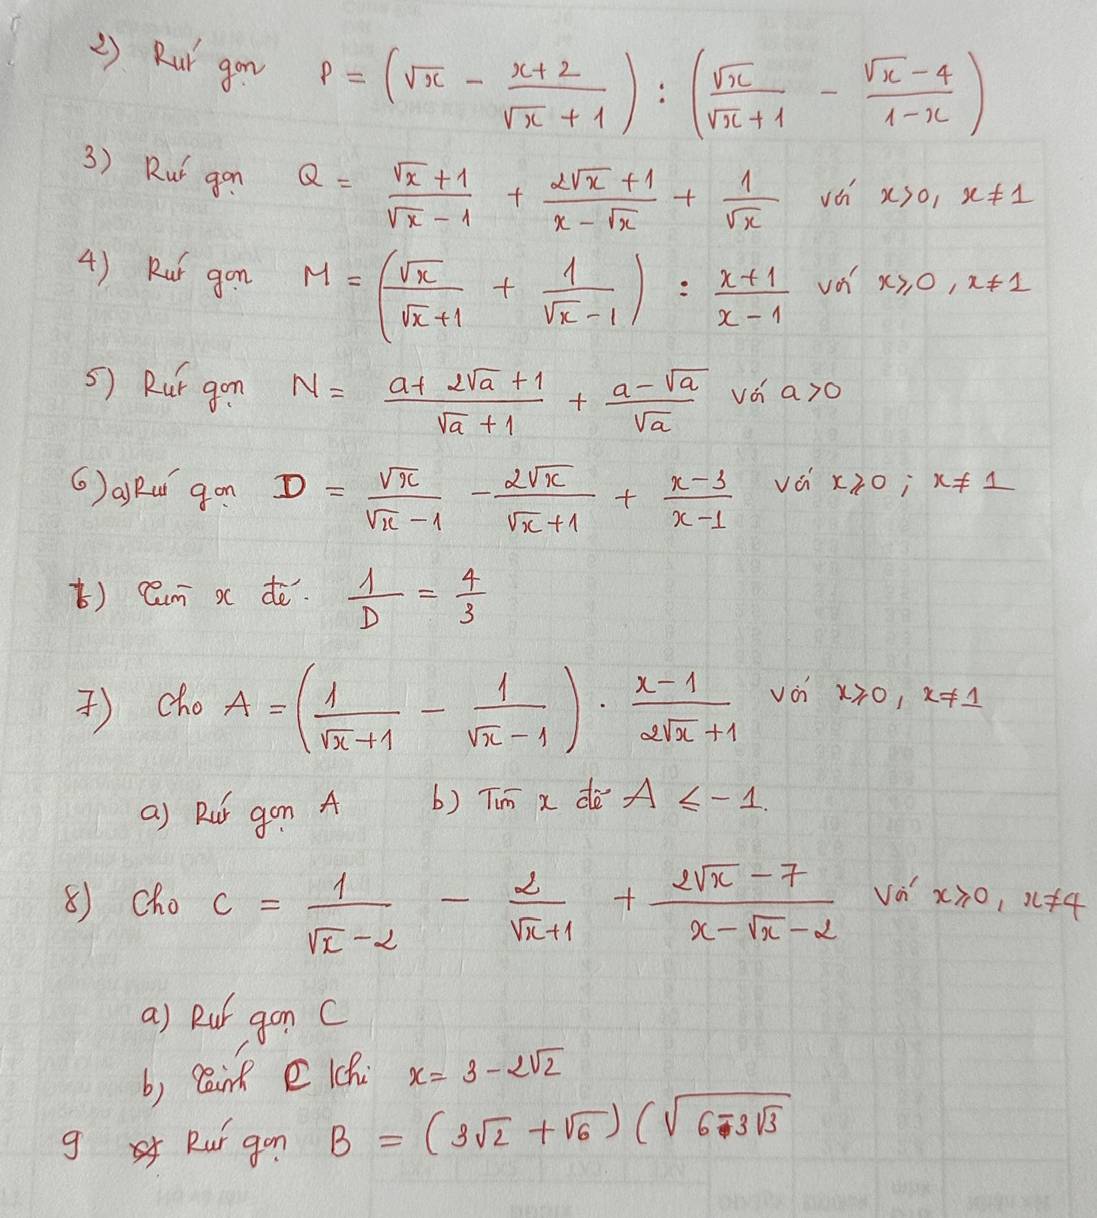 2) Rút gọn P = (√x - (x+2)/(√x + 1)) : (√x/(√x+1) - (√x - 4)/(1-x))
3) Rút gọn Q = (√x + 1)/(√x - 1) + (2√x + 1)/(x - √x) + 1/√x với x>0, x≠1
4) Rút gọn M = (√x/(√x+1) + 1/(√x-1)) : (x+1)/(x-1) với x≥0, x≠1
5) Rút gọn N = (a+ 2√a + 1)/(√a + 1) + (a-√a)/√a với a>0
6) a) Rút gọn D = √x/(√x - 1) - 2√x/(√x+1) + (x-3)/(x-1) với x≥0; x≠1
b) Tìm x để 1/D = 4/3
7) Cho A = (1/(√x+1) - 1/(√x - 1)) . (x-1)/(2√x+1) với x≥0, x≠1
a) Rút gọn A b) Tìm x để A ≤ -1.
8) Cho C = 1/(√x - 2) - 2/(√x+1) + (2√x - 7)/(x-√x-2) với x≥0, x≠4
a) Rút gọn C
b) Tính C khi x = 3 - 2√2
9 Rút gọn B = (3√2 + √6)(√(6-3√3)